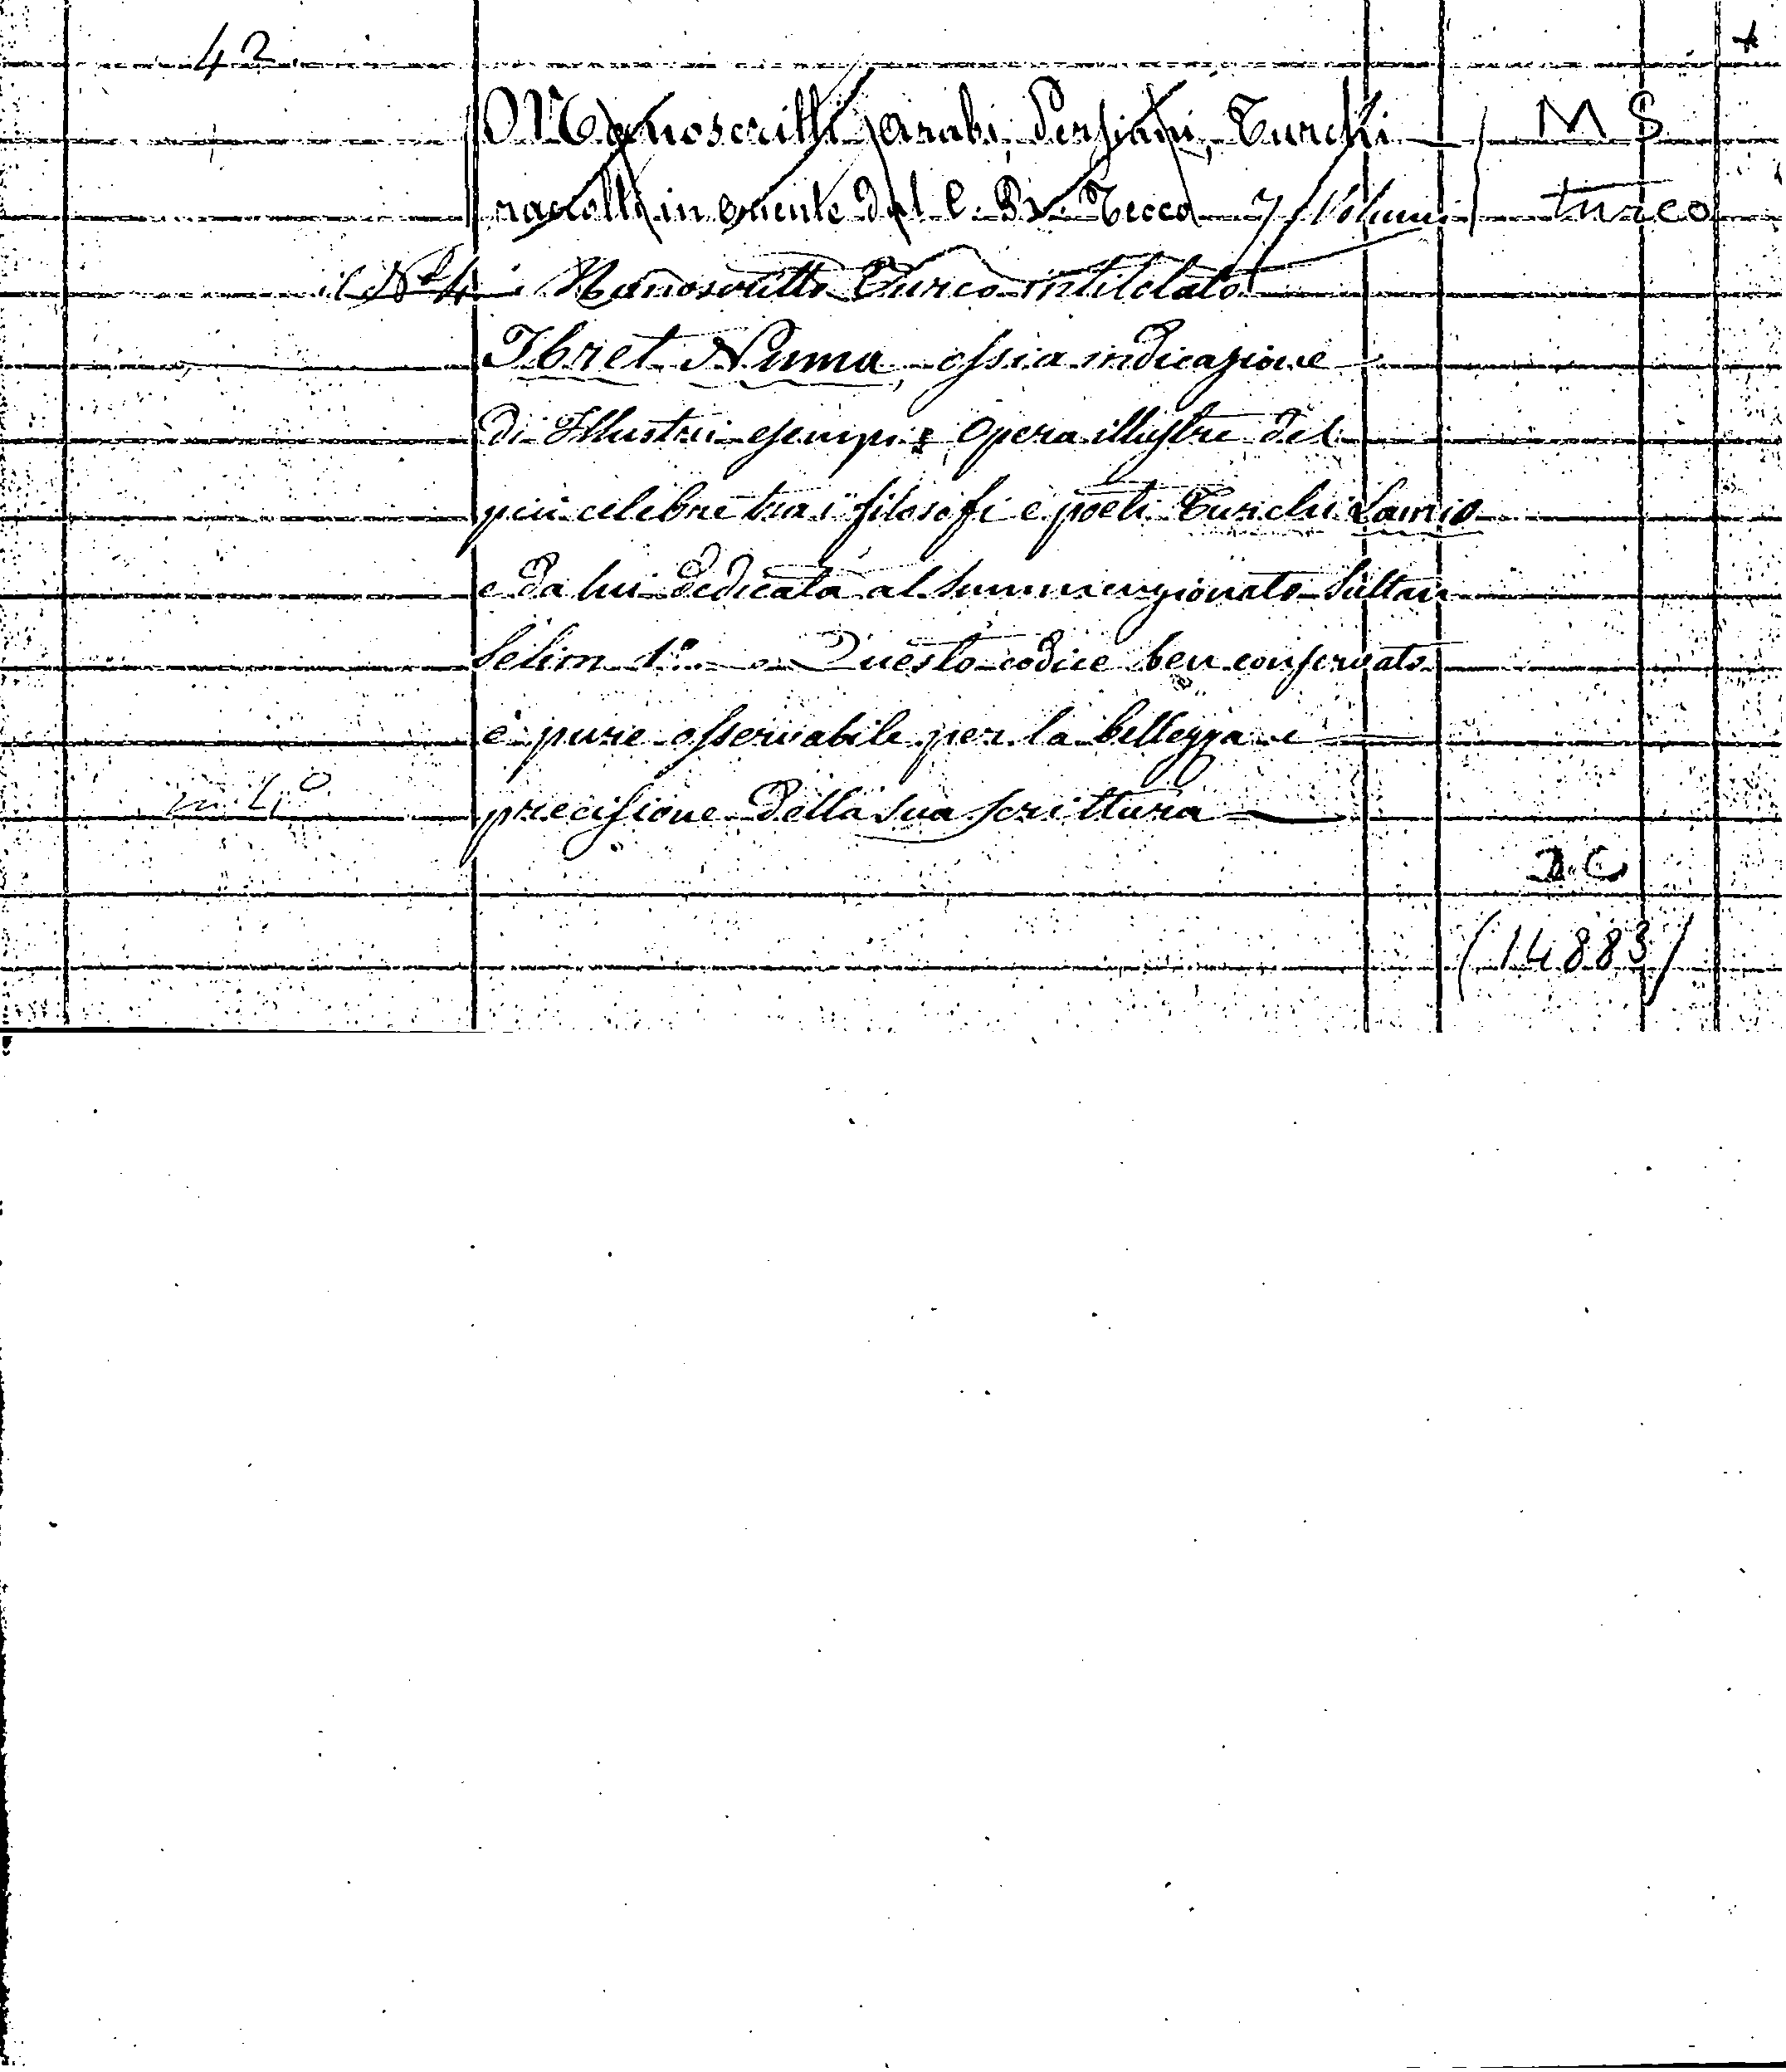 42
Manoscritti Arabi, Persiani, Turchi M S
raccolti in oriente dal C. Br. Tecco 7 Volumi turco
il No 4 Manoscritto Turco intitolato
Ibret Numa, ossia indicazione
di Illustri esempi; Opera illustre del
più celebre tra i filosofi e poeti Turchi Lamio
e da lui dedicata al summenzionato Sultan
Selim 1o. Questo codice ben conservato
è pure osservabile per la bellezza e
in 4o precisione della sua scrittura
D.C
(14883)